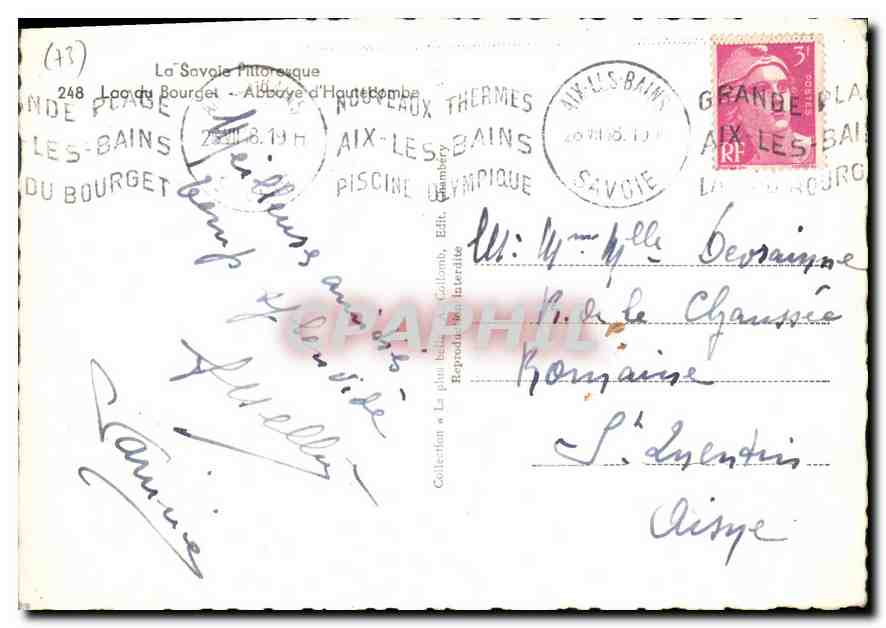 (73)
La Savoie Pittoresque
248 Lac du Bourget - Abbaye d'Hautecombe
NDE PLAGE
LES-BAINS
DU BOURGET
NOUVEAUX THERMES
AIX-LES-BAINS
PISCINE OLYMPIQUE
AIX-LES-BAINS
SAVOIE
GRANDE PLA
AIX-LES-BAI
LAC DU BOURG
3F
POSTES
RF
Meilleures amitiés
temps splendide
Collection « La plus belle » A. Collomb, Edit. Chambéry
Reproduction interdite
CPAPHIL
M: Mme Mlle Devrainne
R. de la Chaussée
Romaine
St Quentin
Aisne